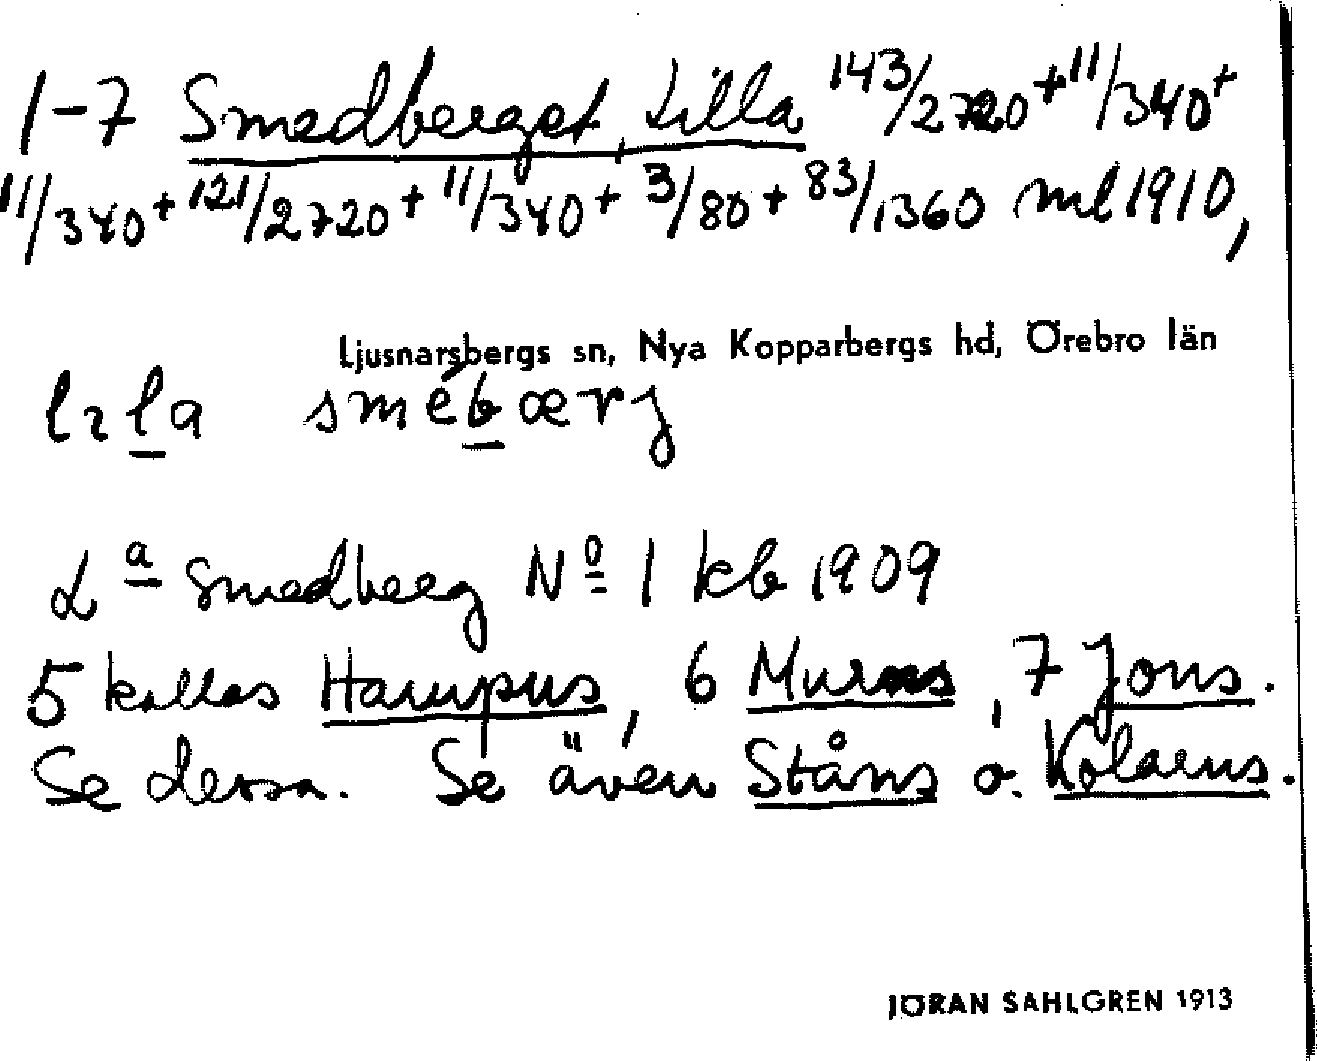 1-7 Smedberget, Lilla 143/2720 + 11/340 +
11/340 + 121/2720 + 11/340 + 3/80 + 83/1360 ml 1910,
Ljusnarsbergs sn, Nya Kopparbergs hd, Örebro län
lɩla smébærj
La Smedberg No 1 kb 1909
5 kallas Hampus, 6 Murns, 7 Jons.
Se dessa. Se även Ståns o. Kolarns.
JÖRAN SAHLGREN 1913